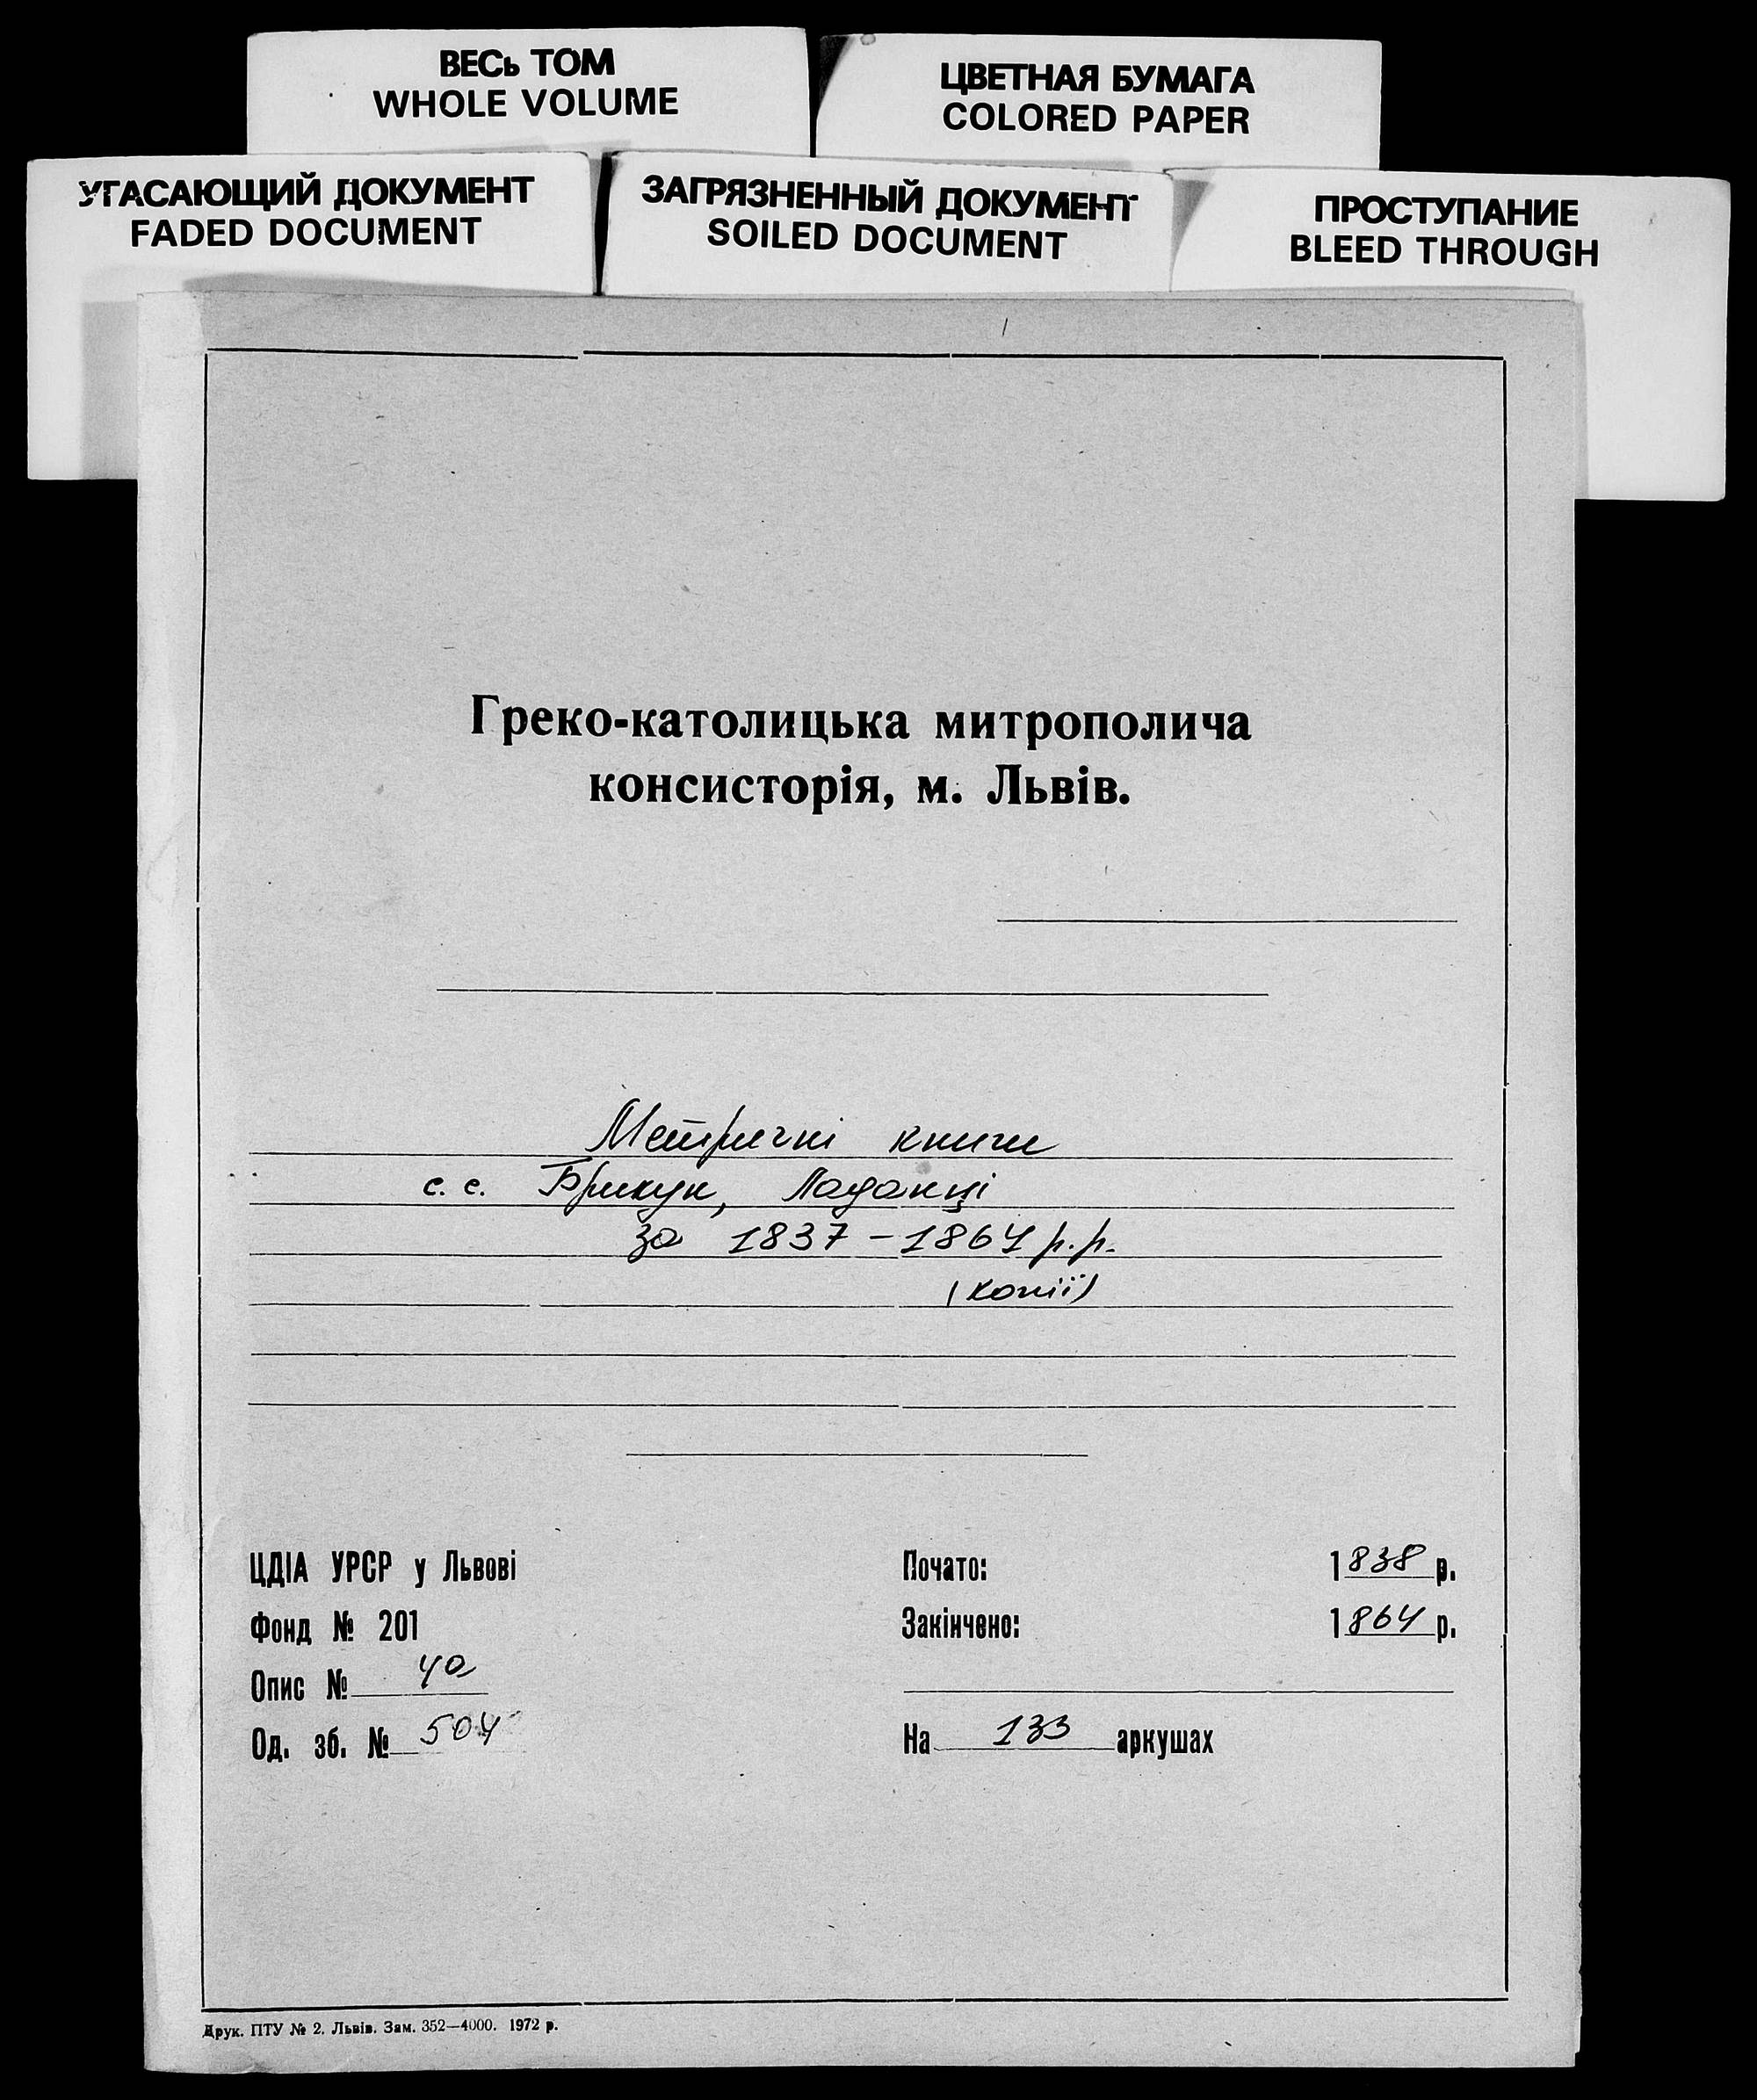 ВЕСЬ ТОМ
WHOLE VOLUME
ЦВЕТНАЯ БУМАГА
COLORED PAPER
УГАСАЮЩИЙ ДОКУМЕНТ
FADED DOCUMENT
ЗАГРЯЗНЕННЫЙ ДОКУМЕНТ
SOILED DOCUMENT
ПРОСТУПАНИЕ
BLEED THROUGH
Греко-католицька митрополича
консисторія, м. Львів.
Метричні книги
с. с. Брикун, Ладанці
за 1837 – 1864 р.р.
(копії)
ЦДІА УРСР у Львові
Почато: 1838 р.
Фонд № 201
Закінчено: 1864 р.
Опис № 4а
Од. зб. № 504
На 133 аркушах
Друк. ПТУ № 2. Львів. Зам. 352—4000. 1972 р.